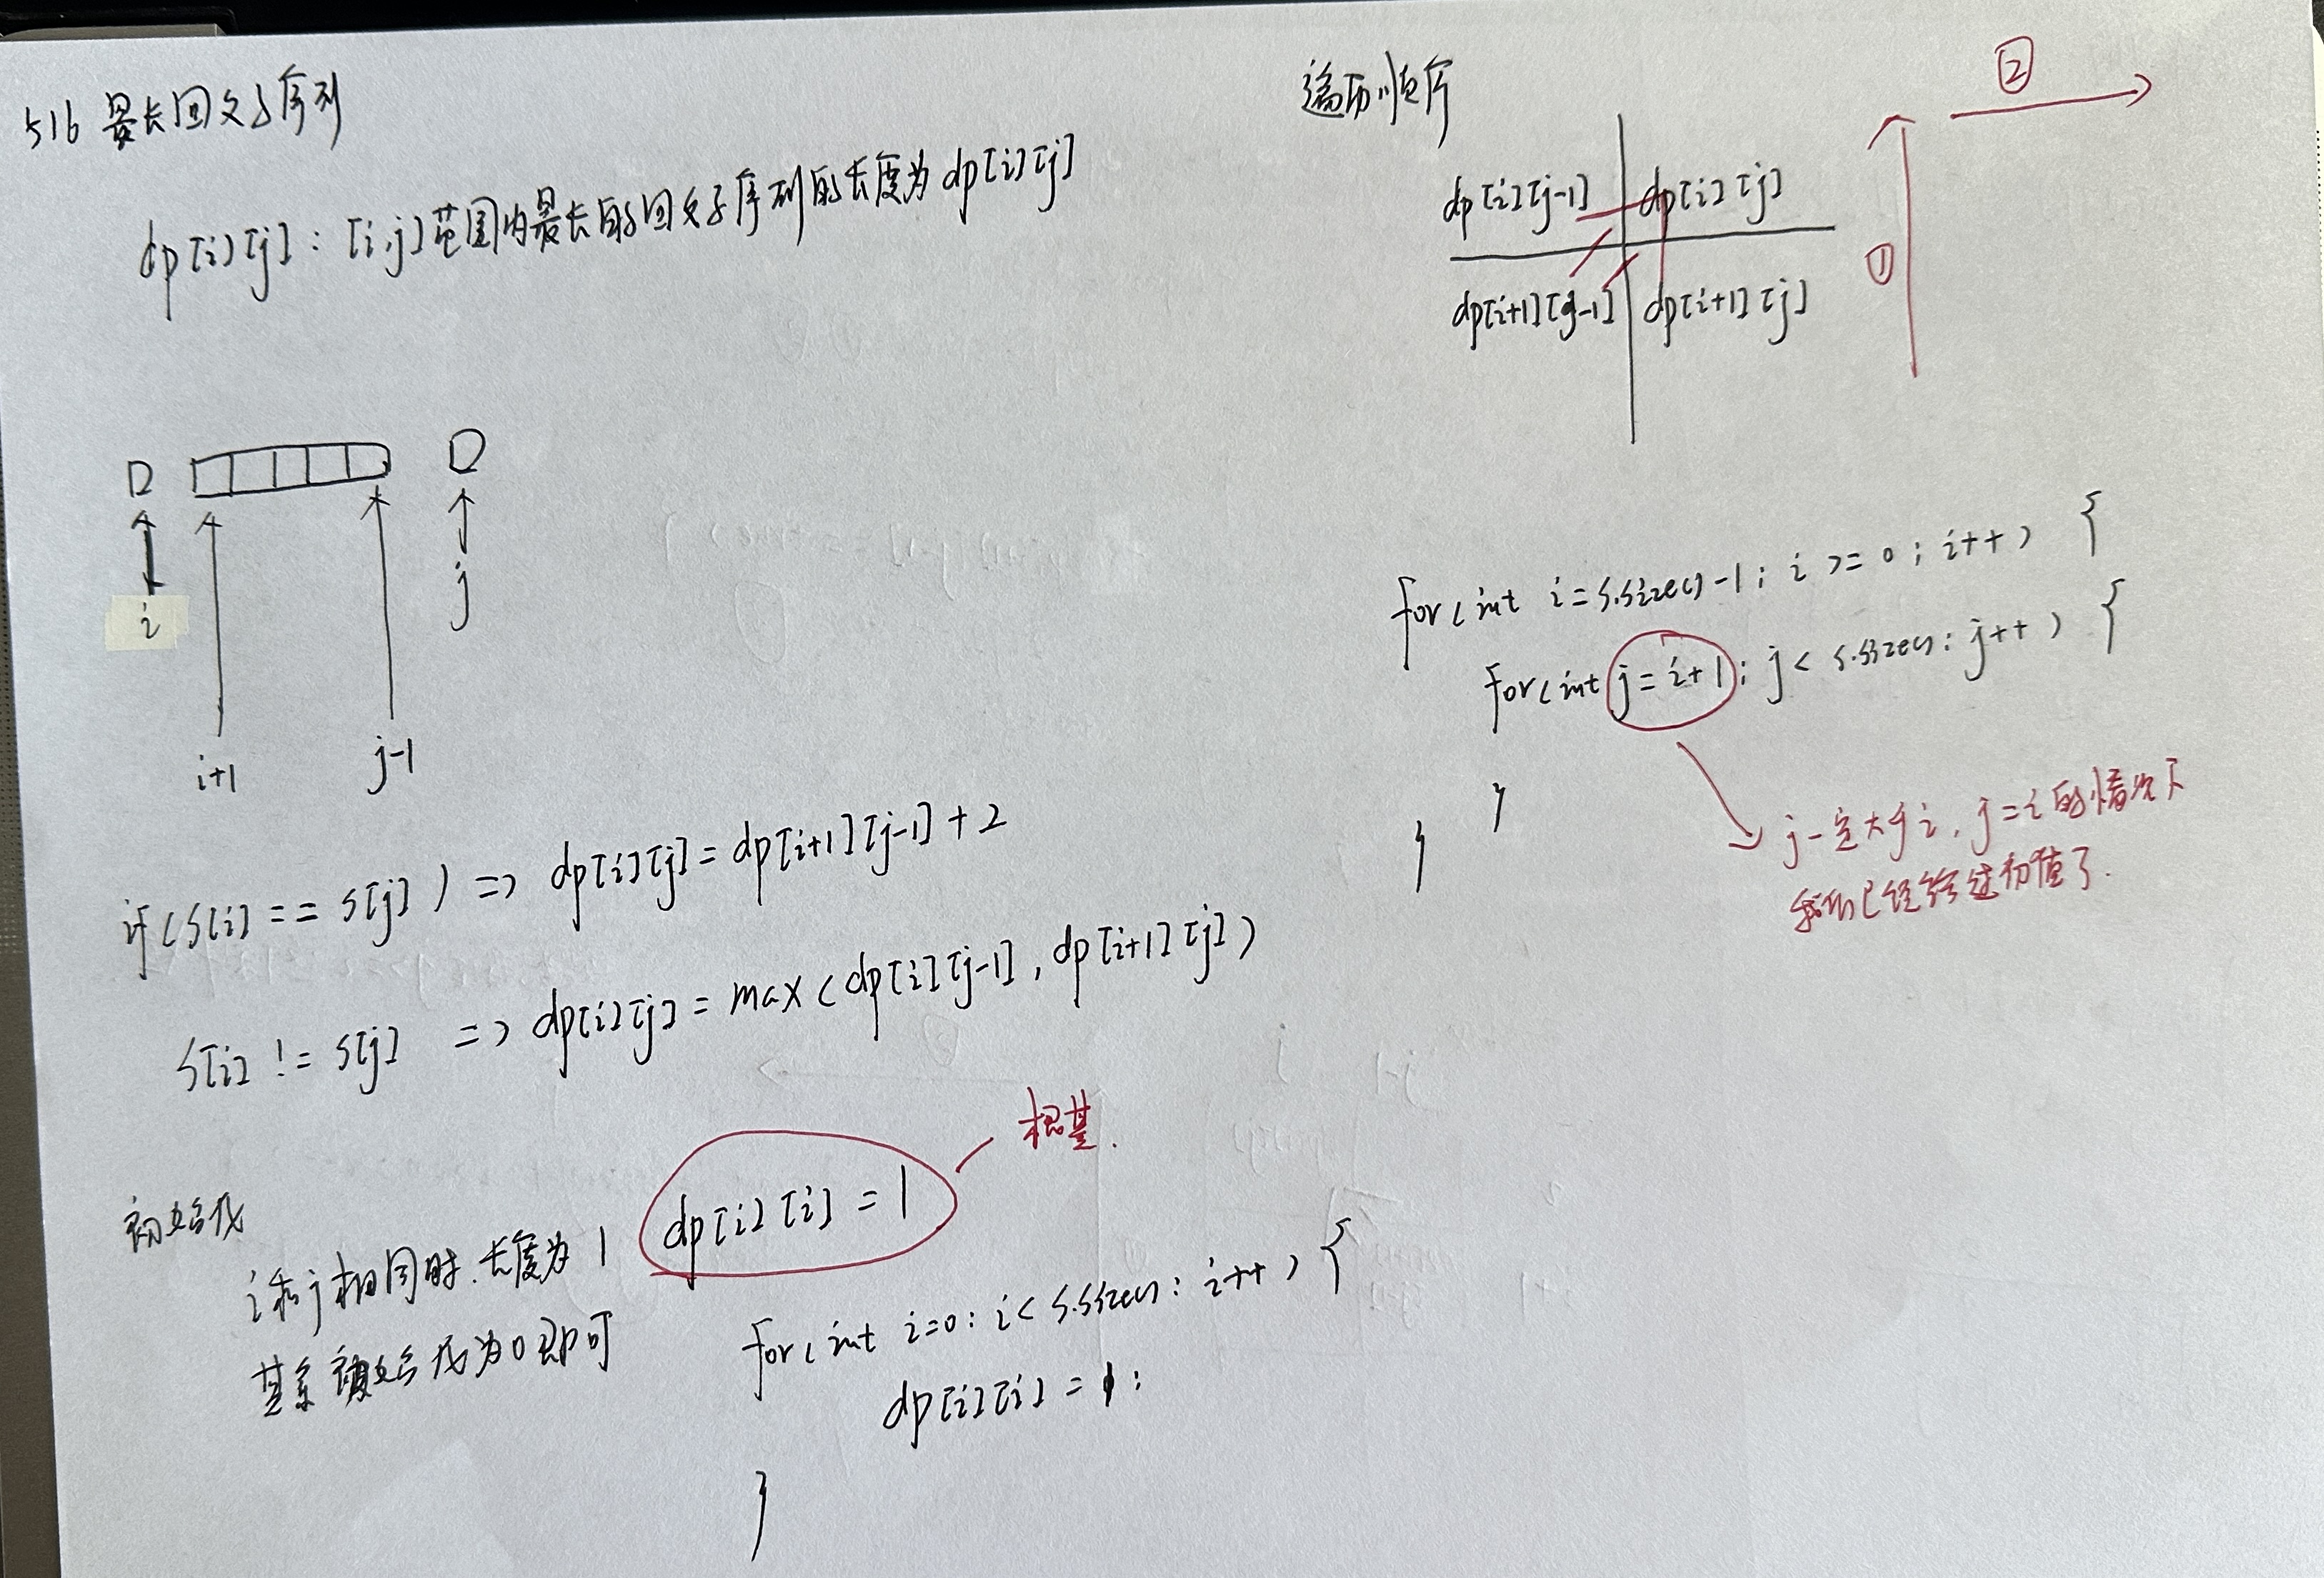 516 最长回文子序列
dp[i][j] : [i,j]范围内最长的回文子序列的长度为 dp[i][j]
i
j
i+1
j-1
if(s[i] == s[j]) => dp[i][j] = dp[i+1][j-1] + 2
s[i] != s[j] => dp[i][j] = max(dp[i][j-1], dp[i+1][j])
初始化
i和j相同时.长度为1 dp[i][i] = 1
根基.
其余初始化为0即可
for(int i=0; i< s.size(); i++) {
dp[i][i] = 1;
}
遍历顺序
dp[i][j-1] dp[i][j]
dp[i+1][j-1] dp[i+1][j]
①
②
for(int i=s.size()-1; i>=0; i++) {
for(int j=i+1; j< s.size(); j++) {
}
}
j一定大于i, j=i的情况下
我们已经给过初值了.